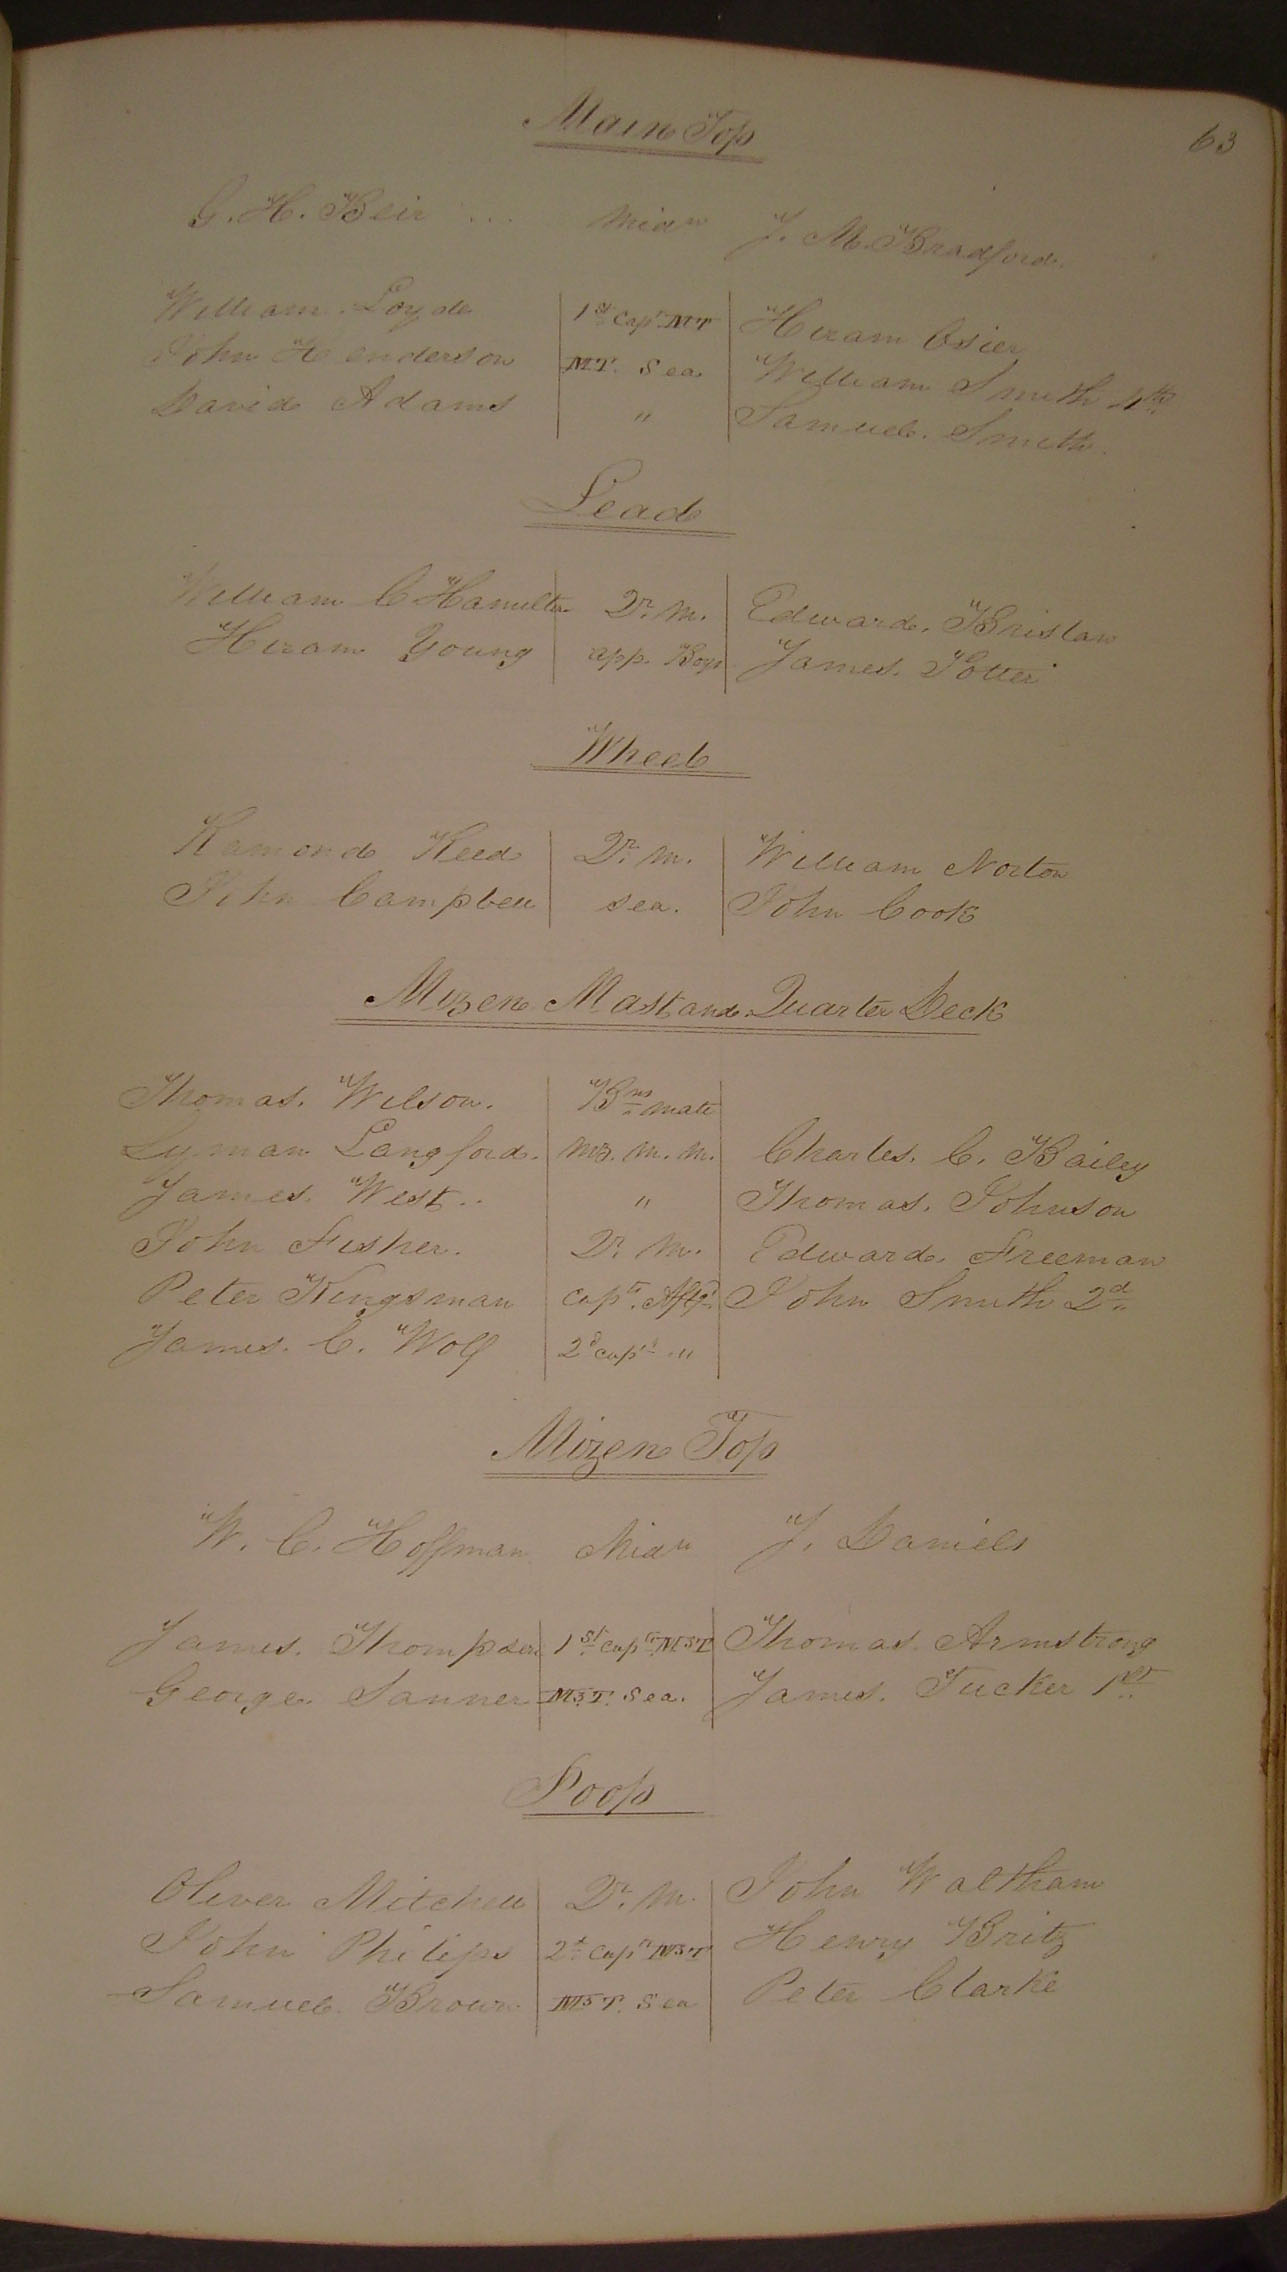 63
Main Top
G. H. Beir ... Midn J. M. Bradford.
William Loyde 1st Capt. MT Hiram Osier
John Henderson MT. Sea William Smith 4th
David Adams " Samuel Smith
Lead
William C Hamilton Qr. M. Edward Bristaw
Hiram Young app. Boys James Potter
Wheel
Ramond Reed Qr. M. William Norton
John Campbell Sea. John Cook
Mizen Mast and Quarter Deck
Thomas Wilson. Bns Mate
Lyman Langford. Mz. M. M. Charles. C. Bailey
James West.. " Thomas. Johnson
John Fisher. Qr. M. Edward Freeman
Peter Kingsman Captn. Aftgd John Smith 2d
James. C. Wolf 2d Capn "
Mizen Top
W. C. Hoffman Midn J. Daniels
James. Thompson 1st Captn MzT Thomas. Armstrong
George Sanner MzT. Sea. James. Tucker 1st
Poop
Oliver Mitchell Qr. M. John Waltham
John Philips 2d Captn MzT Henry Britz
Samuel Brown MzT. Sea Peter Clarke